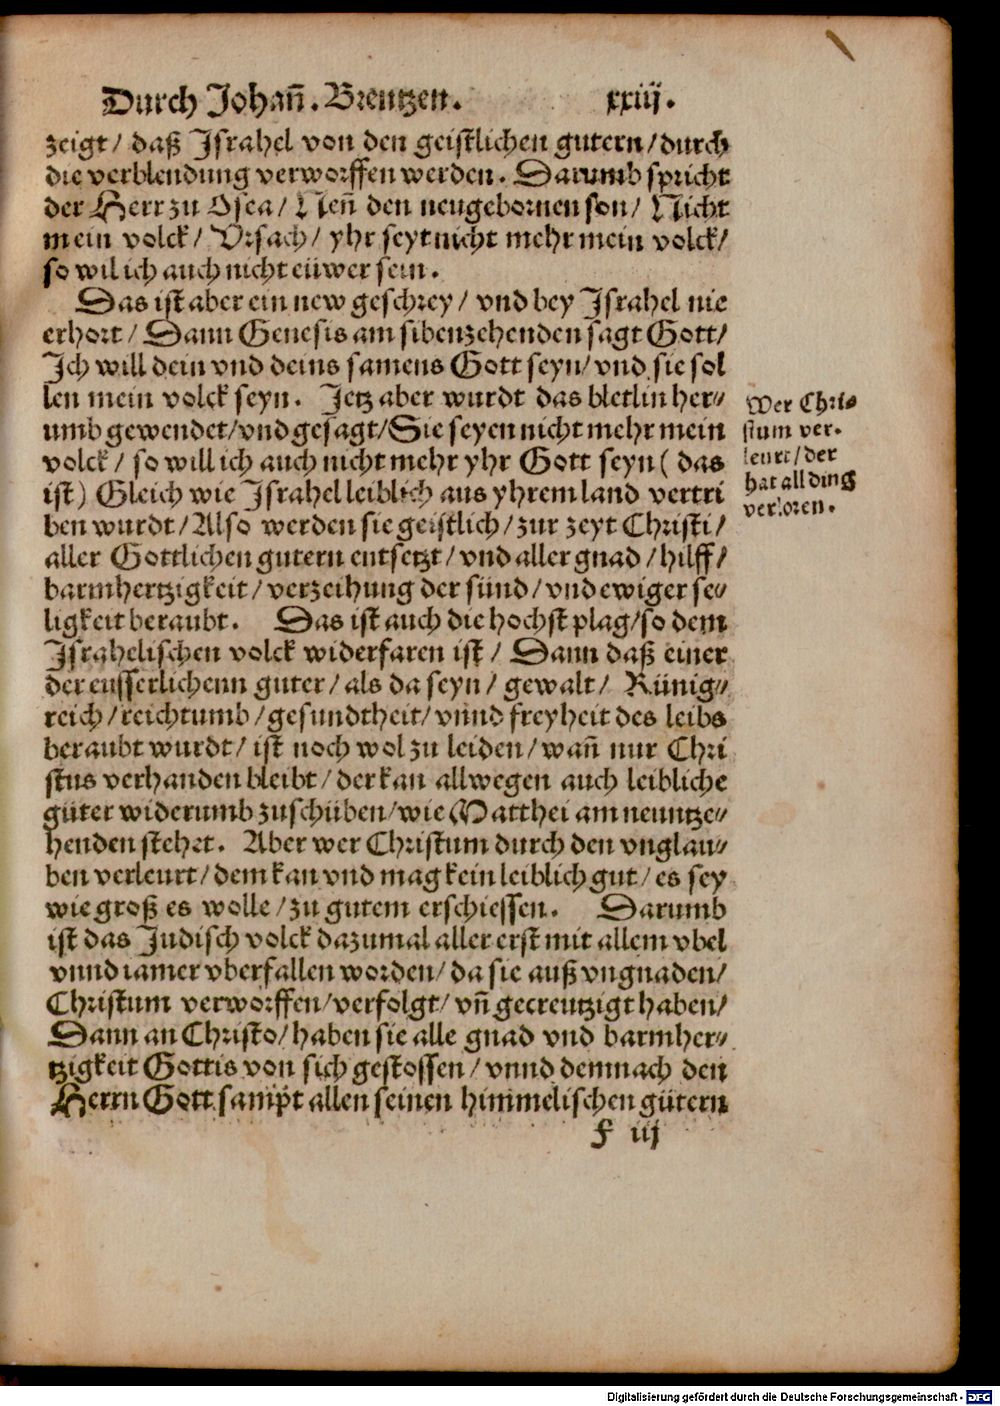 Durch Johañ. Brentzen. xxiij.
zeigt/ daß Jsrahel von den geistlichen gutern/durch
die verblendung verworffen werden. Darumb spricht
der Herr zu Osea/ Neñ den neugebornen son/ Nicht
mein volck/ Vrsach/ yhr seyt nicht mehr mein volck/
so wil ich auch nicht eüwer sein.
Das ist aber ein new geschrey/ vnd bey Jsrahel nie
erhort/ Dann Genesis am sibenzehenden sagt Gott/
Jch will dein vnd deins samens Gott seyn/ vnd sie sol
len mein volck seyn. Jetz aber wurdt das bletlin her⸗
umb gewendet/vnd gesagt/Sie seyen nicht mehr mein
volck/ so will ich auch nicht mehr yhr Gott seyn (das
ist) Gleich wie Jsrahel leiblich aus yhrem land vertri
ben wurdt/Also werden sie geistlich/zur zeyt Christi/
aller Gottlichen gutern entsetzt/ vnd aller gnad/hilff/
barmhertzigkeit/verzeihung der sünd/vnd ewiger se⸗
ligkeit beraubt. Das ist auch die hochst plag/so dem
Jsrahelischen volck widerfaren ist/ Dann daß einer
der eusserlichenn guter/als da seyn/ gewalt/ Künig⸗
reich/reichtumb/gesundtheit/vnnd freyheit des leibs
beraubt wurdt/ ist noch wol zu leiden/wañ nur Chri
stus verhanden bleibt/der kan allwegen auch leibliche
güter widerumb zuschüben/wie Matthei am neuntze⸗
henden stehet. Aber wer Christum durch den vnglau⸗
ben verleurt/dem kan vnd mag kein leiblich gut/es sey
wie groß es wolle/zu gutem erschiessen. Darumb
ist das Judisch volck dazumal aller erst mit allem vbel
vnnd iamer vberfallen worden/da sie auß vngnaden/
Christum verworffen/verfolgt/vñ gecreutzigt haben/
Dann an Christo/haben sie alle gnad vnd barmher⸗
tzigkeit Gottis von sich gestossen/vnnd demnach den
Herrn Gott sampt allen seinen himmelischen gütern
f iij
Wer Chri⸗
stum ver⸗
leurt/der
hat all ding
verloren.
Digitalisierung gefördert durch die Deutsche Forschungsgemeinschaft - DFG